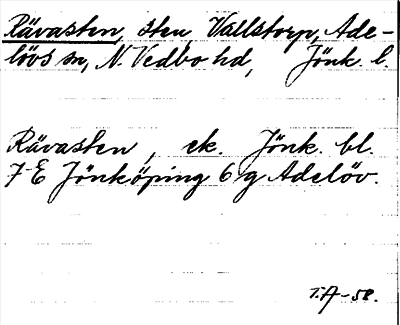 Rävasten, sten, Vallstorp, Ade-
lövs sn, N. Vedbo hd, Jönk. l.
Rävasten, ek. Jönk. bl.
7 E Jönköping 6 g Adelöv.
T.A-58.